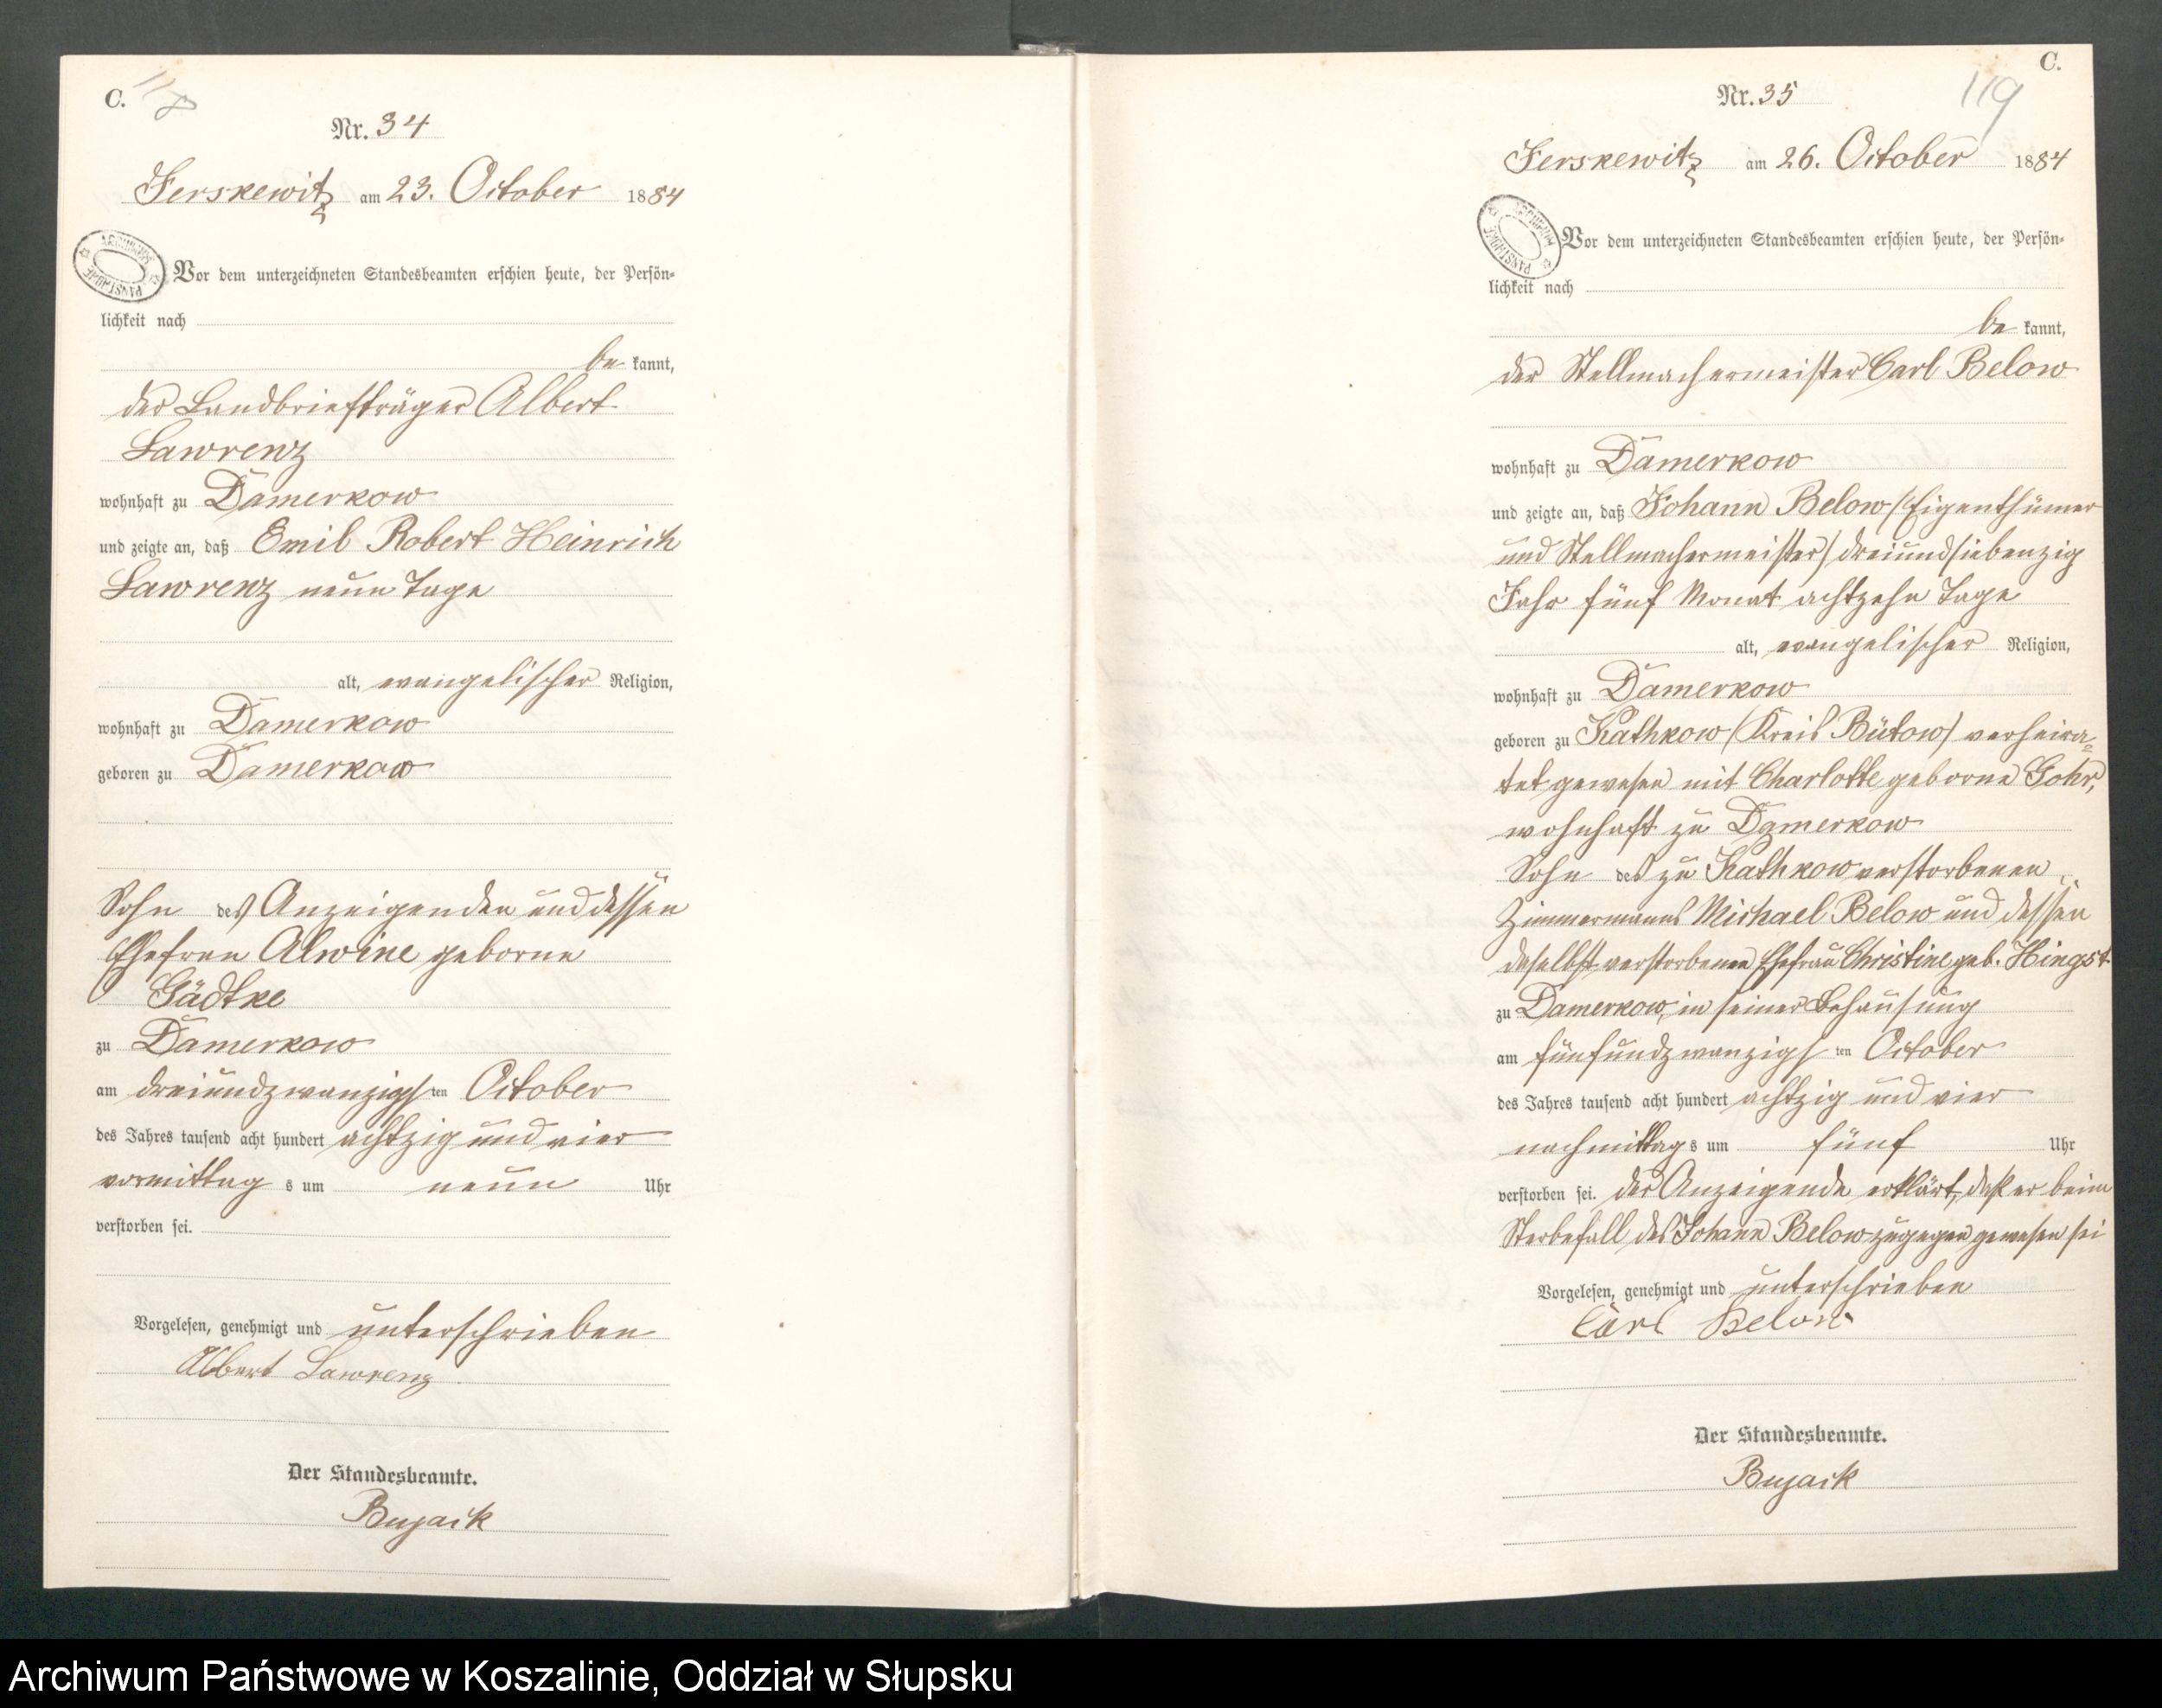 C. 118
Nr. 34
Jerskewitz am 23. October 1884
Vor dem unterzeichneten Standesbeamten erschien heute, der Persön-
lichkeit nach
be kannt,
der Landbriefträger Albert
Lawrenz
wohnhaft zu Damerkow
und zeigte an, daß Emil Robert Heinrich
Lawrenz neun Tage
alt, evangelischer Religion,
wohnhaft zu Damerkow
geboren zu Damerkow
Sohn des Anzeigenden und dessen
Ehefrau Alwine geborne
Gädtke
zu Damerkow
am dreiundzwanzigsten October
des Jahres tausend acht hundert achtzig und vier
vormittag s um neun Uhr
verstorben sei.
Vorgelesen, genehmigt und unterschrieben
Albert Lawrenz
Der Standesbeamte.
Bujack
C.
119
Nr. 35
Jerskewitz am 26. October 1884
Vor dem unterzeichneten Standesbeamten erschien heute, der Persön-
lichkeit nach
be kannt,
der Stellmachermeister Carl Below
wohnhaft zu Damerkow
und zeigte an, daß Johann Below (Eigenthümer
und Stellmachermeister) dreiundsiebenzig
Jahr fünf Monat achtzehn Tage
alt, evangelischer Religion,
wohnhaft zu Damerkow
geboren zu Kathkow (Kreis Bütow) verheira-
tet gewesen mit Charlotte geborne Gohr,
wohnhaft zu Damerkow
Sohn des zu Kathkow verstorbenen
Zimmermanns Michael Below und dessen
daselbst verstorbenen Ehefrau Christine geb. Hingst
zu Damerkow, in seiner Behausung
am fünfundzwanzigsten October
des Jahres tausend acht hundert achtzig und vier
nachmittag s um fünf Uhr
verstorben sei. Der Anzeigende erklärt, daß er beim
Sterbefall des Johann Below zugegen gewesen sei
Vorgelesen, genehmigt und unterschrieben
Carl Below
Der Standesbeamte.
Bujack
ARCHIWUM PAŃSTWOWE
Archiwum Państwowe w Koszalinie, Oddział w Słupsku